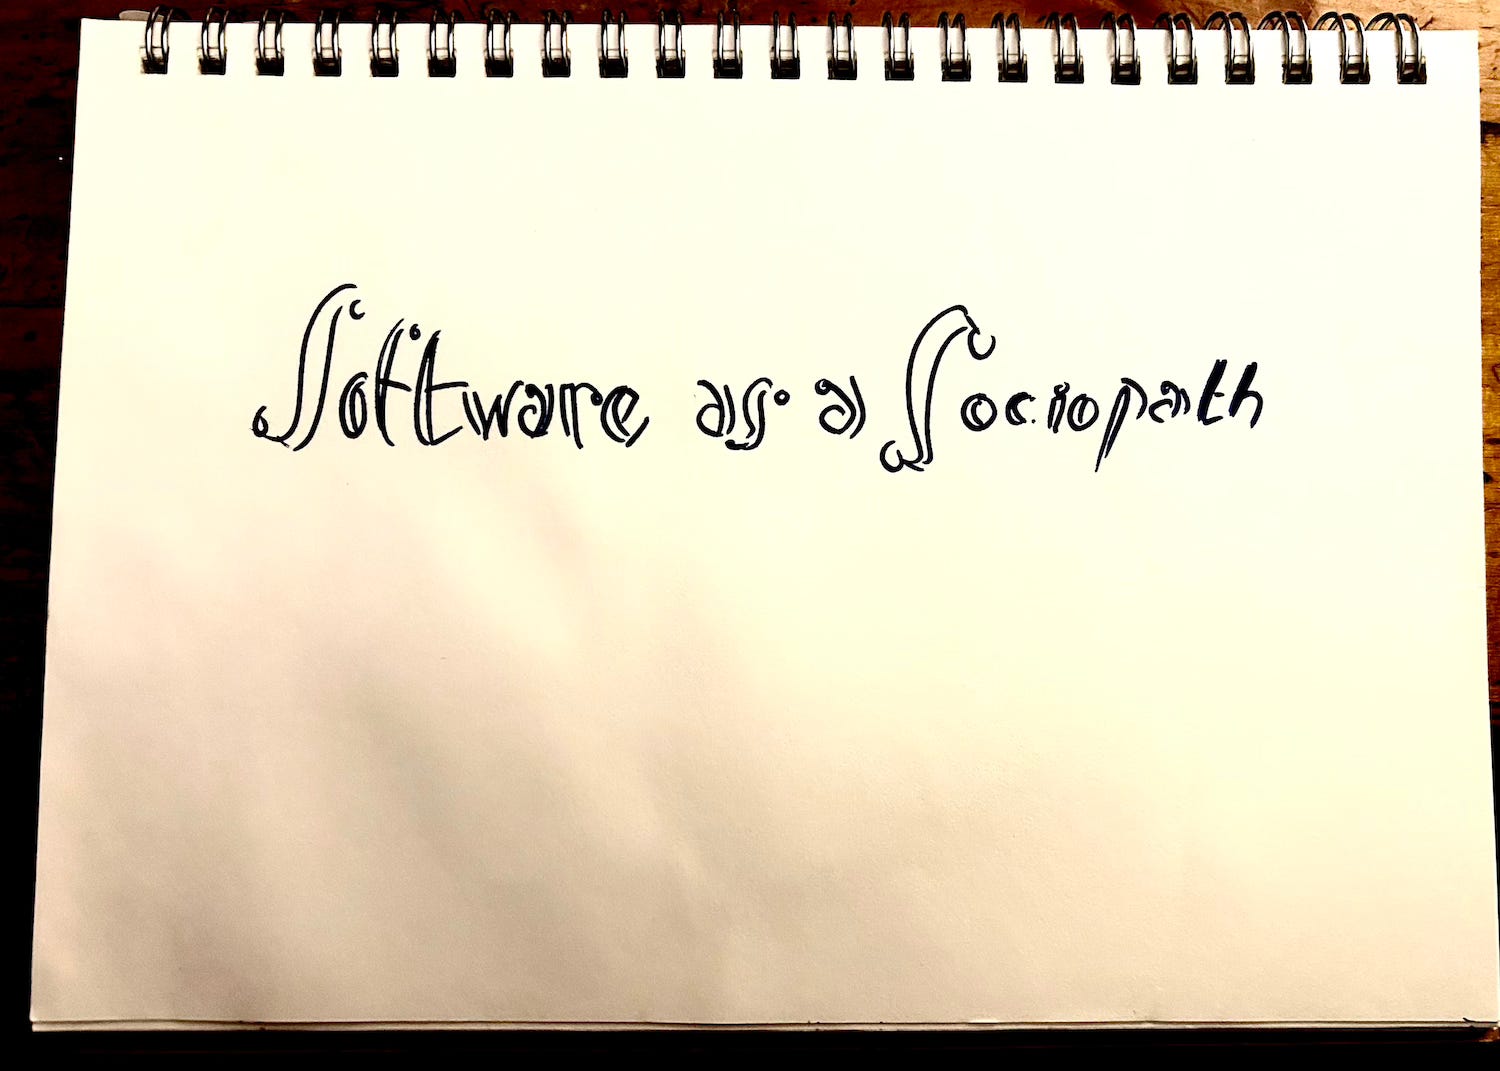 Software as a Sociopath